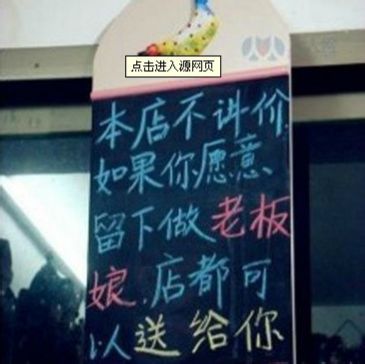 点击进入源网页
本店不讲价
如果你愿意
留下做老板
娘.店都可
以送给你